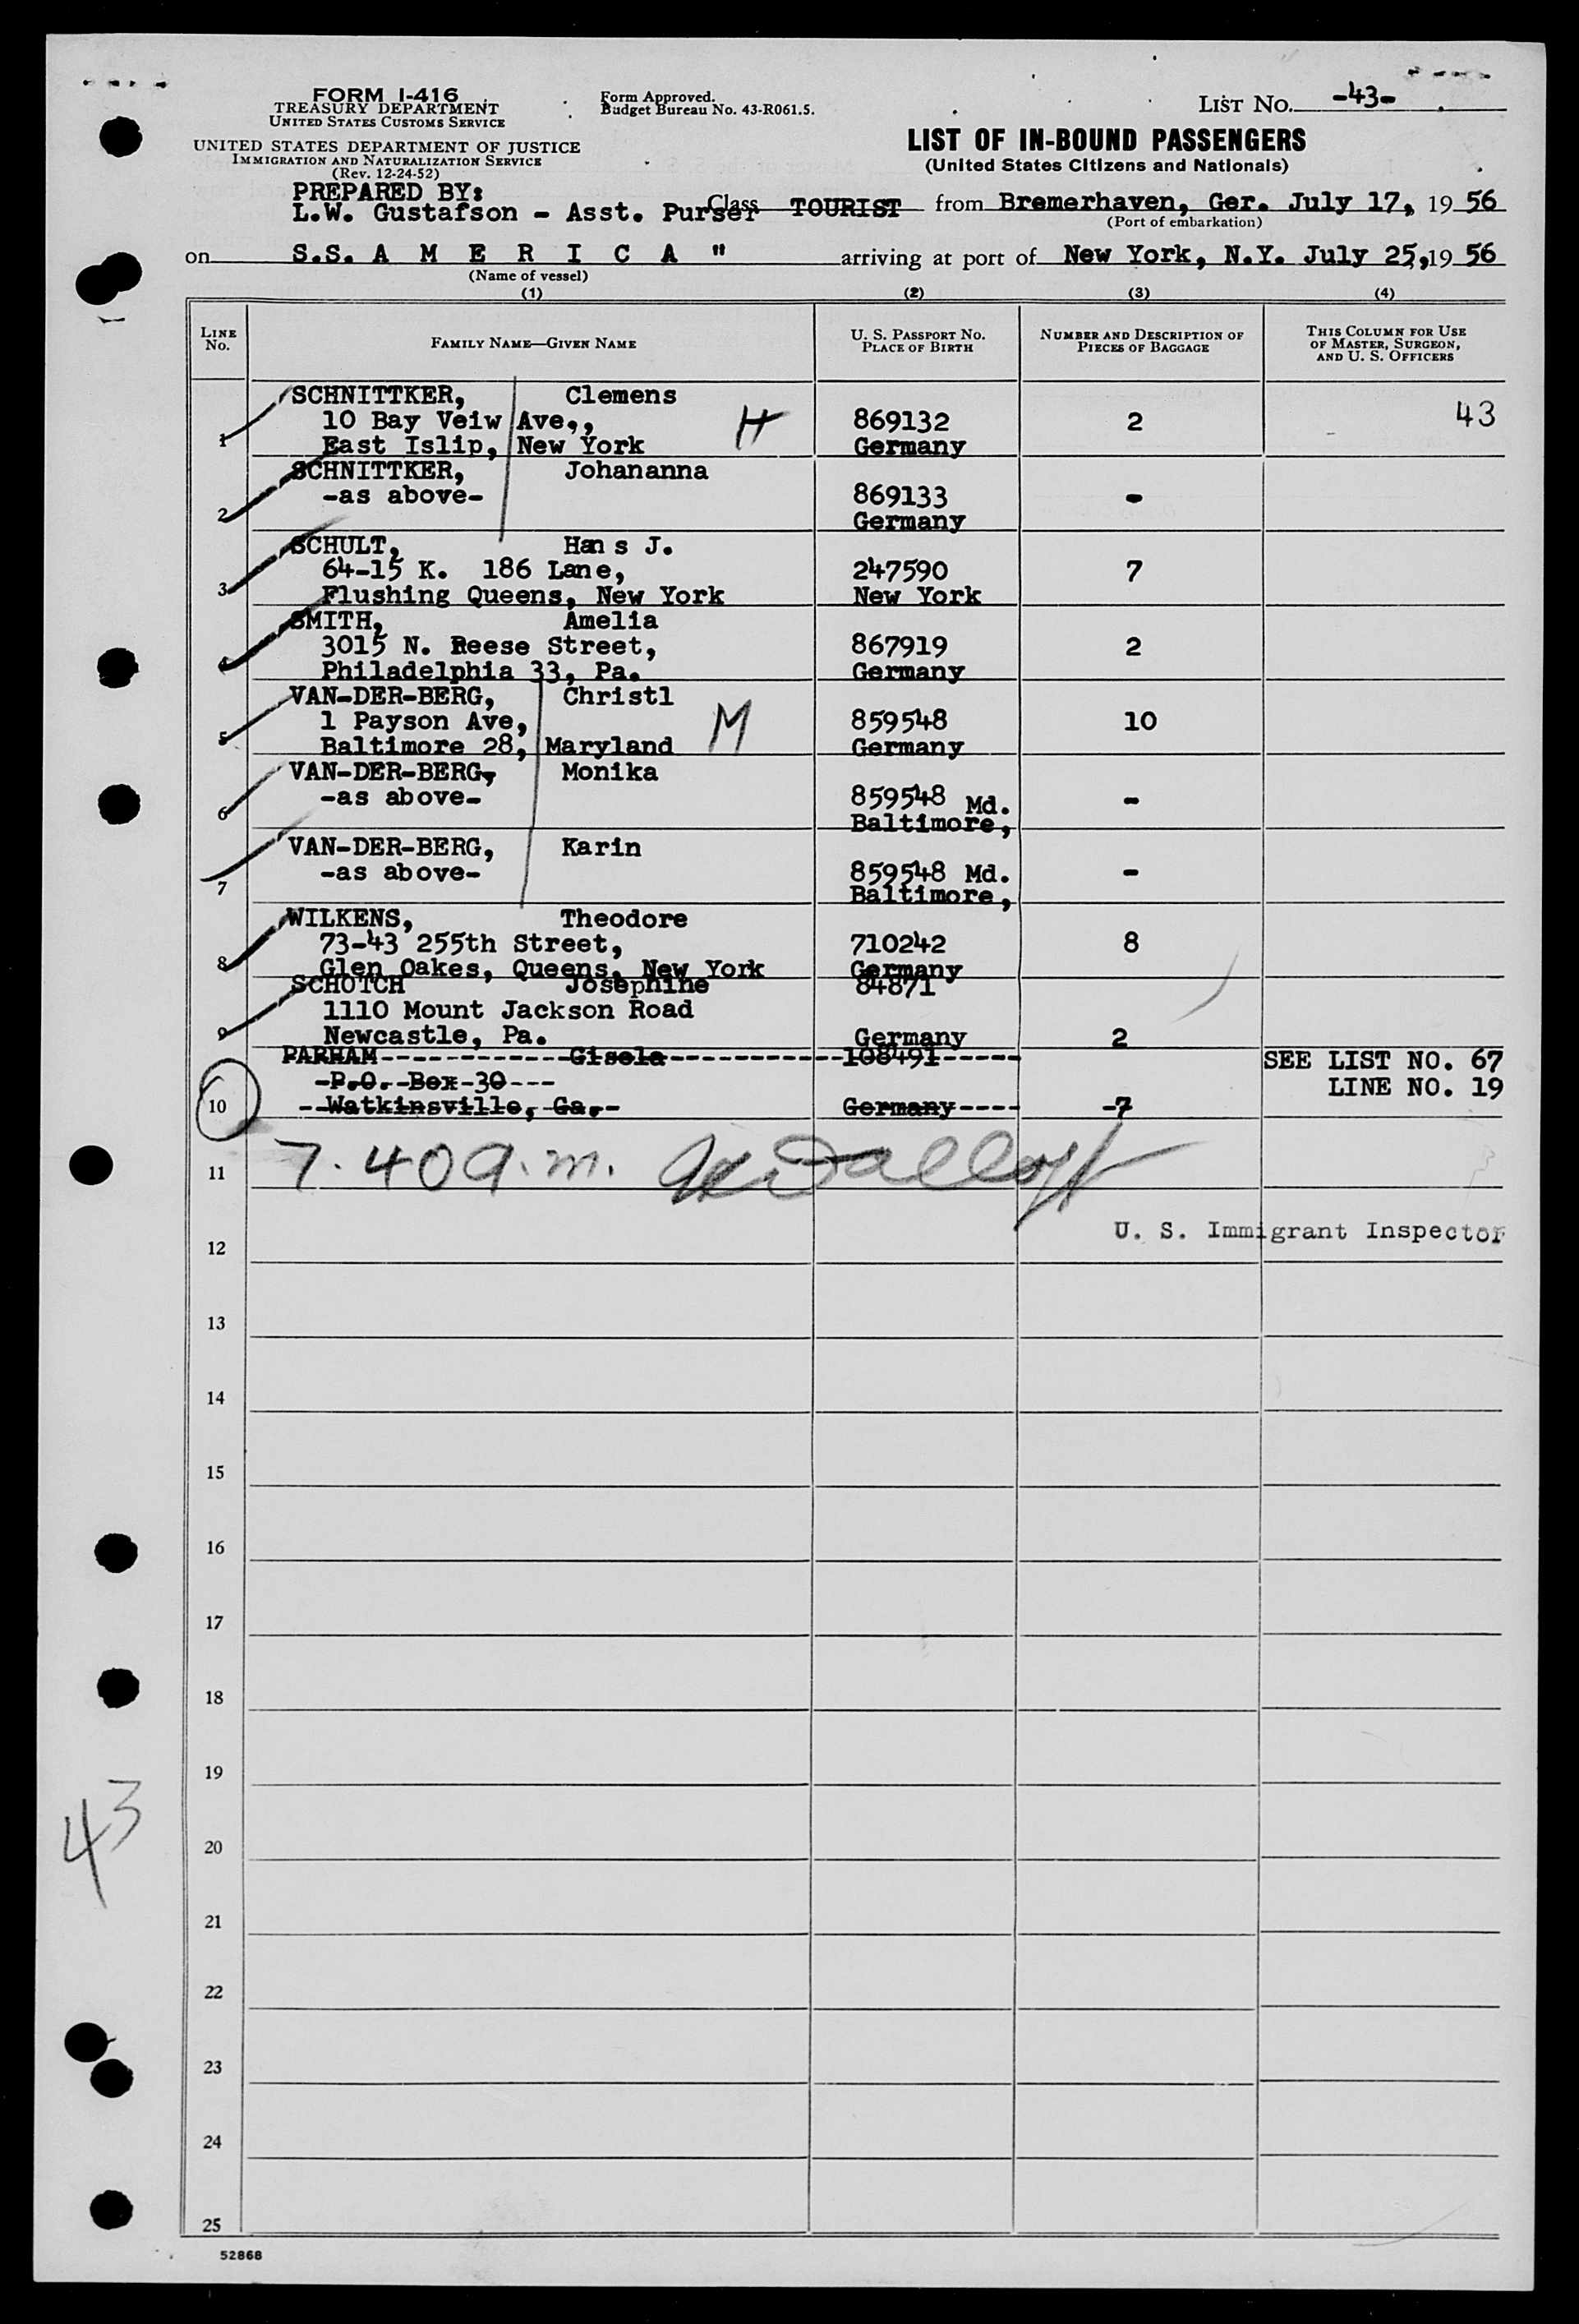 FORM I-416
TREASURY DEPARTMENT
UNITED STATES CUSTOMS SERVICE
UNITED STATES DEPARTMENT OF JUSTICE
IMMIGRATION AND NATURALIZATION SERVICE
(Rev. 12-24-52)
Form Approved.
Budget Bureau No. 43-R061.5.
LIST NO. -43-
LIST OF IN-BOUND PASSENGERS
(United States Citizens and Nationals)
PREPARED BY:
L.W. Gustafson - Asst. Purser Class TOURIST from Bremerhaven, Ger. July 17, 19 56
(Port of embarkation)
on S.S. A M E R I C A " arriving at port of New York, N.Y. July 25, 19 56
(Name of vessel)
(1) (2) (3) (4)
LINE NO. FAMILY NAME—GIVEN NAME U. S. PASSPORT NO. PLACE OF BIRTH NUMBER AND DESCRIPTION OF PIECES OF BAGGAGE THIS COLUMN FOR USE OF MASTER, SURGEON, AND U. S. OFFICERS
SCHNITTKER, Clemens
10 Bay Veiw Ave,, H 869132 2 43
1 East Islip, New York Germany
SCHNITTKER, Johananna
-as above- 869133 -
2 Germany
SCHULT, Hans J.
64-15 K. 186 Lane, 247590 7
3 Flushing Queens, New York New York
SMITH, Amelia
3015 N. Reese Street, 867919 2
4 Philadelphia 33, Pa. Germany
VAN-DER-BERG, Christl
1 Payson Ave, M 859548 10
5 Baltimore 28, Maryland Germany
VAN-DER-BERG, Monika
-as above- 859548 Md. -
6 Baltimore,
VAN-DER-BERG, Karin
-as above- 859548 Md. -
7 Baltimore,
WILKENS, Theodore
73-43 255th Street, 710242 8
8 Glen Oakes, Queens, New York Germany
SCHOTCH Josephine 84871
1110 Mount Jackson Road
9 Newcastle, Pa. Germany 2
PARHAM Gisela 108491 SEE LIST NO. 67
P.O. Box 30 LINE NO. 19
10 Watkinsville, Ga. Germany 7
11 7.40 a.m.
U. S. Immigrant Inspector
12
13
14
15
16
17
18
19
43
20
21
22
23
24
25
52868